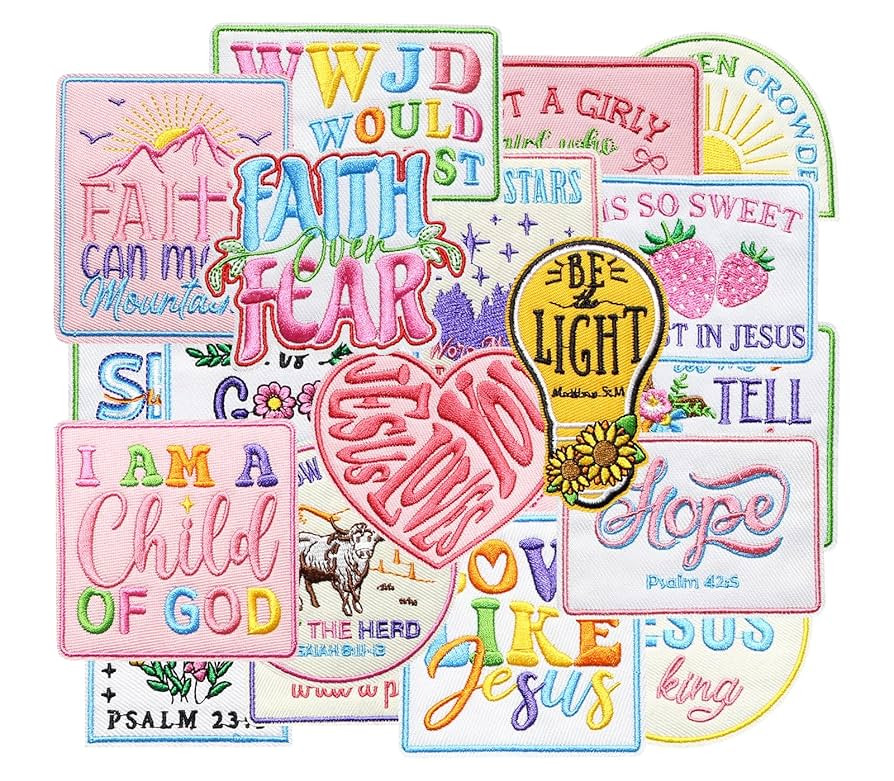 WWJD
WOULD
ST
T A GIRLY
girl who
EN CROWDE
FAIT
CAN M
Mountain
FAITH
Over
FEAR
STARS
IS SO SWEET
ST IN JESUS
BE
the
LIGHT
TELL
I AM A
Child
OF GOD
JESUS
LOVES
YOU
Hope
Psalm 42:5
THE HERD
ISAIAH 8:11-13
LOV
LIKE
Jesus
ESUS
king
PSALM 23:
with a p